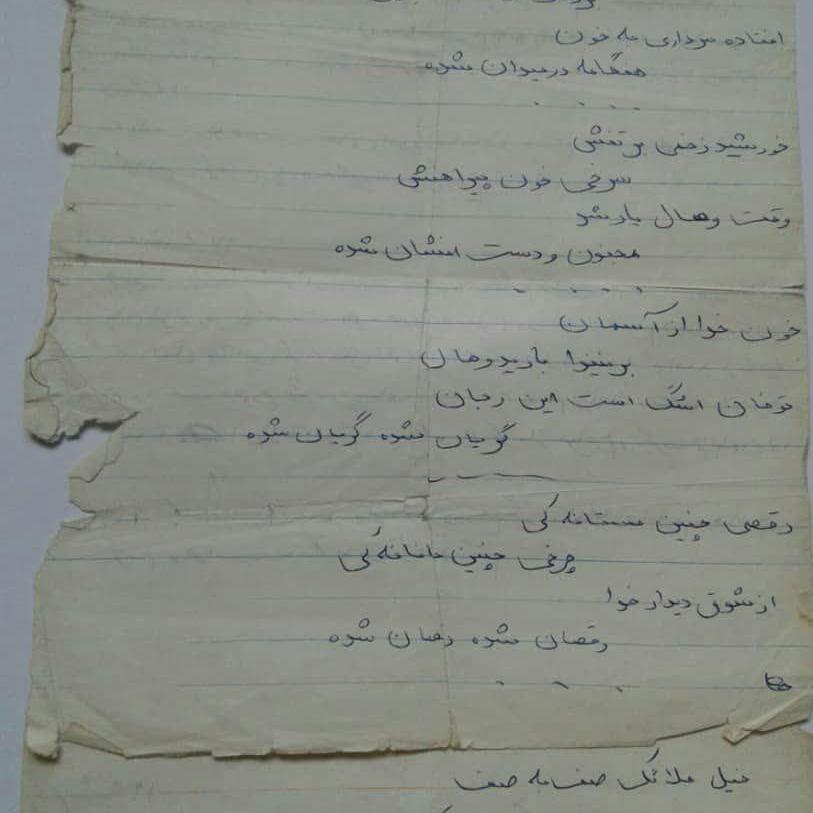 افتاده سرداری به خون
هنگامه در میدان شده
خورشید زخمی بر تنش
سرخی خون پیراهنش
وقت وصال یار شد
مجنون و دست افشان شده
خون خدا از آسمان
بر نینوا بارید و حال
توفان اشک است این زمان
گریان شده گریان شده
رقصی چنین مستانه کی
چرخی چنین جانانه کی
از شوق دیدار خدا
رقصان شده رقصان شده
خیل ملائک صف به صف